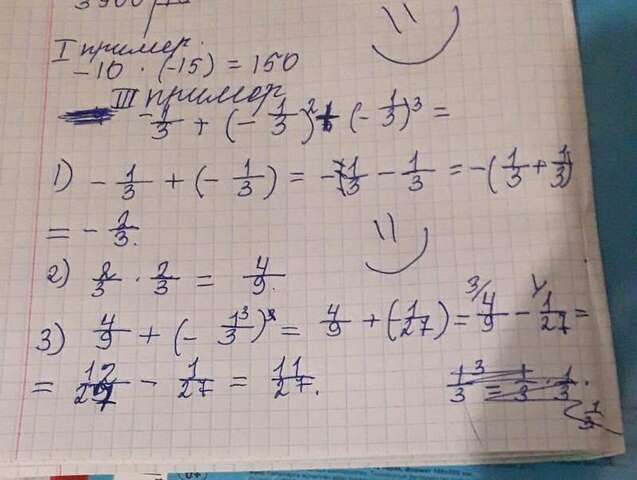 I пример.
-10 · (-15) = 150
III пример
-1/3 + (-1/3)² + (-1/3)³ =
1) -1/3 + (-1/3) = -1/3 - 1/3 = -(1/3 + 1/3)
= -2/3.
2) 2/3 · 2/3 = 4/9.
3) 4/9 + (-1³/3)³ = 4/9 + (-1/27) = ³/4/9 - ¹/1/27 =
= 12/27 - 1/27 = 11/27.